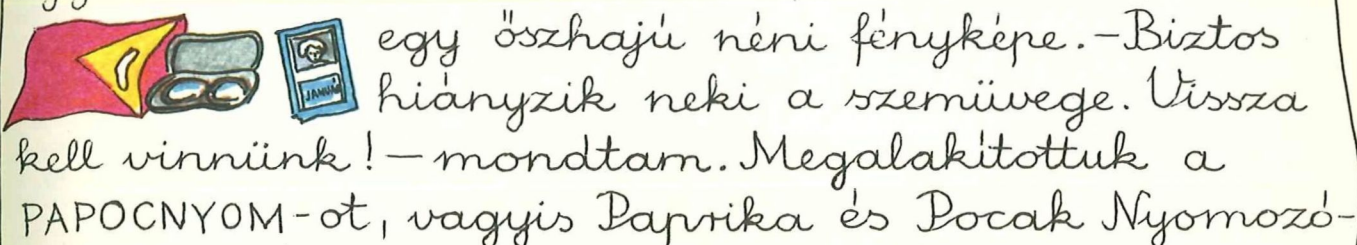 egy őszhajú néni fényképe.-Biztos
JANUÁR
hiányzik neki a szemüvege. Vissza
kell vinnünk! - mondtam. Megalakítottuk a
PAPOCNYOM-ot, vagyis Paprika és Pocak Nyomozó-